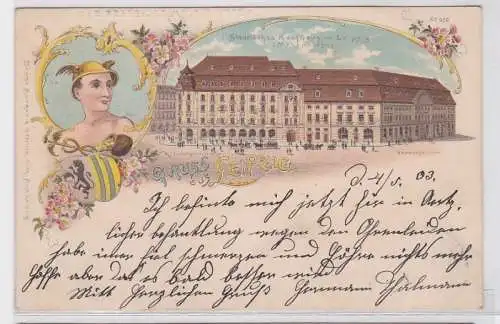 Städtisches Kaufhaus in Leipzig
GRUSS AUS LEIPZIG
d. 4/5. 03.
Ich befinde mich jetzt hier in Aertz-
licher behandlung wegen den Ohrenleiden
habe immer viel schmerzen und Höhre nichts mehr
hoffe aber das es bald besser wird
Mit Herzlichen Gruß Hermann Thalmann